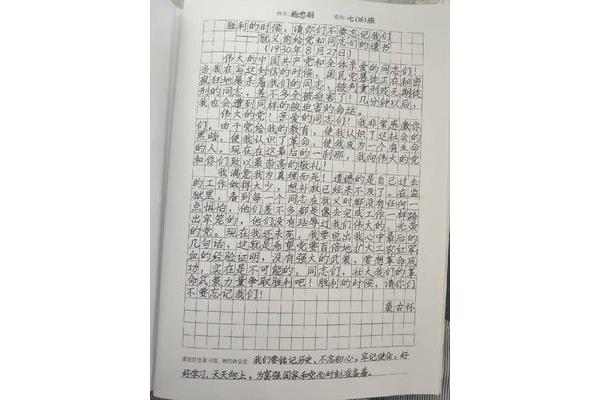 姓名：杨忠明 班别：七(16)班
胜利的时候，请你们不要忘记我们
——就义前给党和同志们的遗书
(1930年8月27日)
伟大的中国共产党和全体亲爱的同志们！
当我在写这封信的时候，国民党暴徒正在秘密
疯狂地屠杀着我们的同志，被判重刑或无期徒
刑的同志，差不多全被迫害了！几分钟以后，
我也会遭到同样的被迫害的命运。
伟大的党！亲爱的同志们！我非常感激你
们。由于党给我的教育，使我认识了这社会的
黑暗，使我认识了革命，使我成为一个有生命
的人。现在在这最后的一刹那，我向伟大的党
和你们致以最崇高的敬礼！
我满意我为真理而死！遗憾的是自己过去
的工作做得太少，想补救已经来不及了。在监
狱里，看到每一个同志在就义时都没有任何一
点惧怕，他们差不多都是像去完成工作一样跨
出牢笼的，他们没有玷辱过我们伟大的、光荣
的党。现在我还未死，我要说出我心中最后的
几句话，这就是希望党要百倍地扩大工农红军
血的经验证明，没有强大的武装，要想革命成
功，实在是不可能的，同志们，壮大我们的革
命武装力量争取胜利吧！胜利的时候，请你们
不要忘记我们！
裘古怀
我们要铭记历史，不忘初心，牢记使命，好
好学习、天天向上，为富强国家和党而时刻准备着。